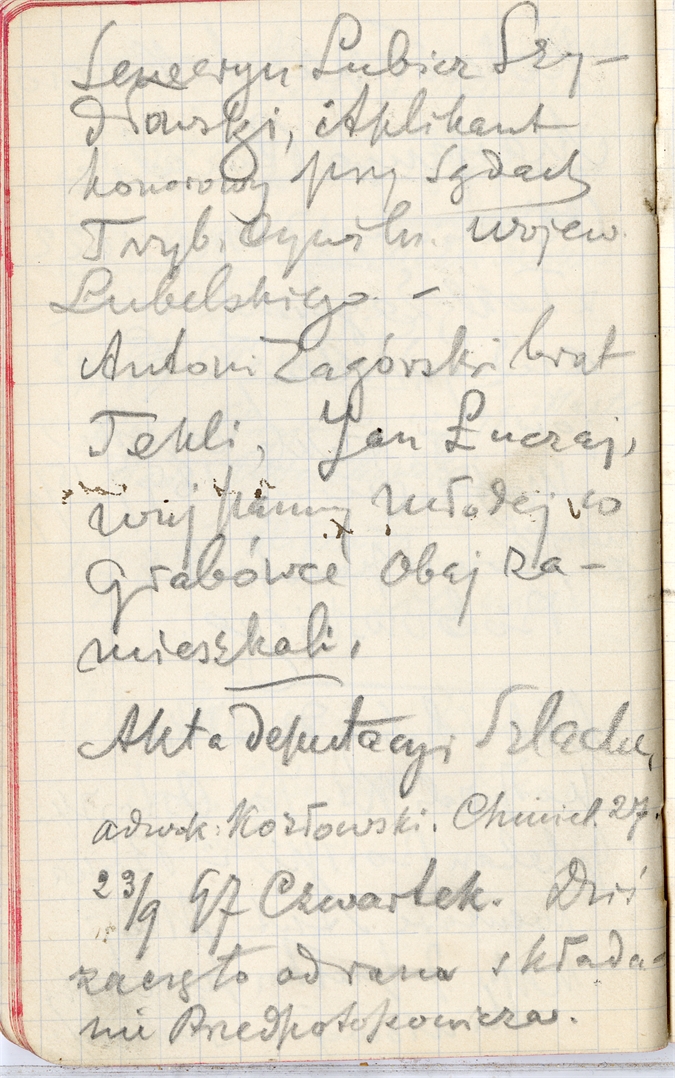 Seweryn Lubicz Szy-
dłowski, Aplikant
honorowy przy Sądach
Tryb. Cywiln. Wojew.
Lubelskiego. -
Antoni Zagórski brat
Tekli, Jan Łuczaj,
wuj panny młodej, w
Grabówce obaj za-
mieszkali.
Akta deputacyi Szlache,
adwok. Kozłowski. Chmiel. 27.
23/9 97 Czwartek. Dziś
zaczęto od rana składa-
nie Przedpotopowicza.